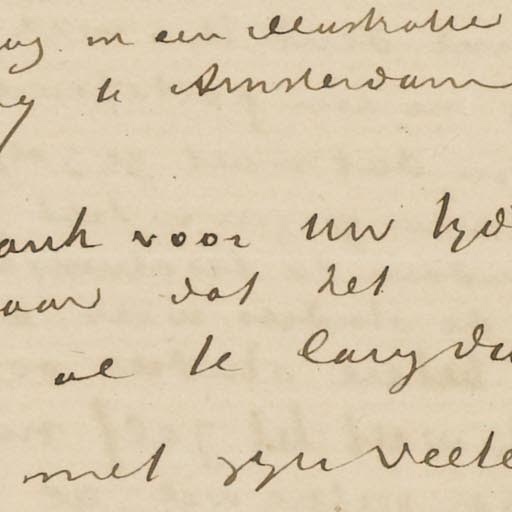 in een illustratie
te Amsterdam
ank voor Uw tyd
aar dat het
al te lang du
met zyn veele